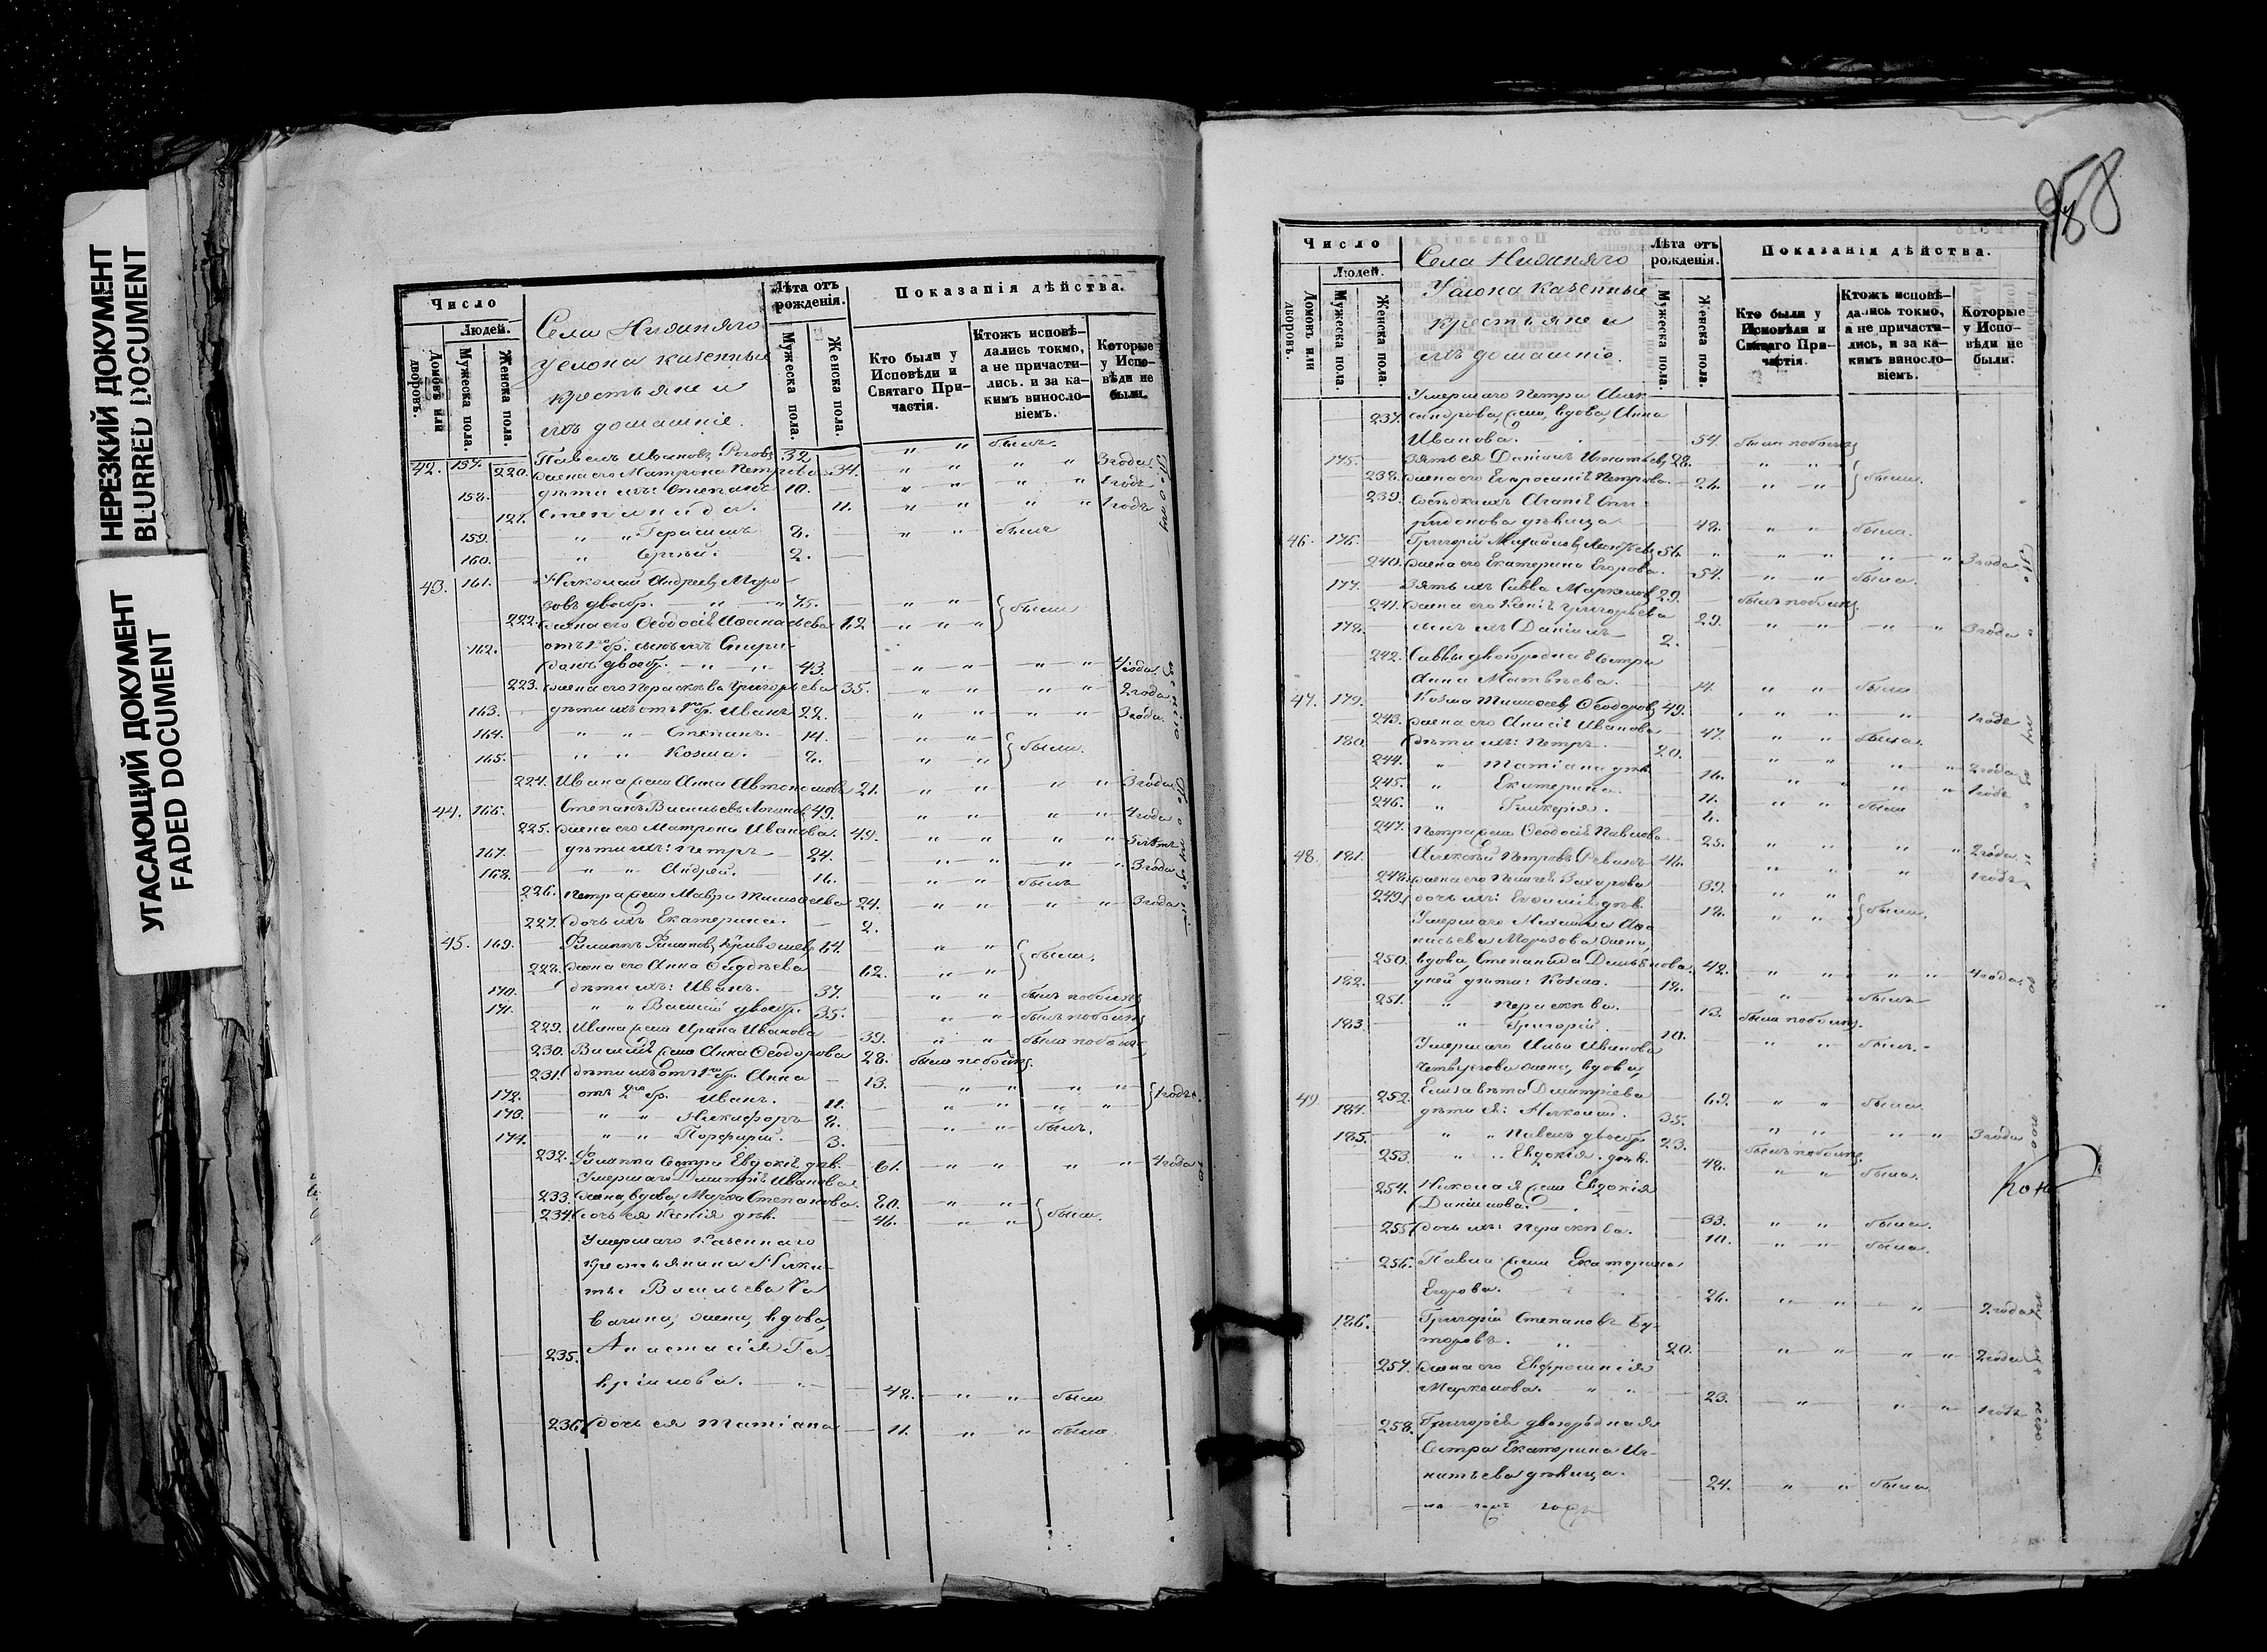 НЕРЕЗКИЙ ДОКУМЕНТ
BLURRED DOCUMENT
УГАСАЮЩИЙ ДОКУМЕНТ
FADED DOCUMENT
Число
Людей.
Домовъ или дворовъ.
Мужеска пола.
Женска пола.
Села Нижняго
Услона казенные
крестьяне и
ихъ домашніе.
Лѣта отъ рожденія.
Мужеска пола.
Женска пола.
Показанія дѣйства.
Кто были у Исповѣди и Святаго При-частія.
Ктожъ исповѣ-дались токмо, а не причасти-лись. и за ка-кимъ винословіемъ.
Которые у Испо-вѣди не были.
42. 157. Павелъ Ивановъ Роговъ 32 " " былъ.
220. жена его Матрона Петрова 34. " " " " 3 года.
158. дѣти ихъ: Степанъ 10. " " " " 1 годъ
121. Степанида. 11. " " " " 1 годъ
159. " " Герасимъ 8. " " былъ
160. " " Сергѣй. 2.
43. 161. Николай Андреевъ Моро-
зовъ двоебр. " " 75. " " были
222. жена его Ѳеодосія Аѳанасьева 62 " " "
162. отъ 1го бр. сынъ ихъ Спири-
донъ двоебр. " " 43. " " " " 4 года.
223. жена его Параскева Григорьева 35. " " " " 2 года
163. дѣти ихъ отъ 1го бр. Иванъ 22. " " " " 3 года.
164. " " Степанъ. 14. " " были.
165. " " Козма. 8. " "
224. Ивана жена Анна Автономова 21. " " " " 3 года
44. 166. Степанъ Васильевъ Логиновъ 49. " " " " 4 года
225. жена его Матрона Иванова. 49. " " " " 5 лѣтъ
167. дѣти ихъ: Петръ 24. " " " " 3 года
168. " " Андрей. 16. " " былъ
226. Петра жена Мавра Тимоѳеева 24. " " " " 3 года
227. дочь ихъ Екатерина. 2.
45. 169. Филиппъ Филиповъ 64. " " были.
228. жена его Анна Ѳаддѣева 62. " "
170. дѣти ихъ: Иванъ. 37. " " былъ
171. " " Василій двоебр. 35. " " былъ
229. Ивана жена Ирина Иванова 39. " " была
230. Василія жена Анна Ѳеодорова 28. была
231. дѣти ихъ отъ 1го бр. Анна 13. " " " " 1 годъ.
172. отъ 2го бр. Иванъ. 11. " " " "
173. " " Никифоръ 8. " " былъ.
174. " " Порфирій. 3.
232. Филиппа Сестра Евдокія дѣв. 61. " " " " 4 года
Умершаго Дмитрія Иванова
233. жена, вдова, Марѳа Степанова. 80. " " были.
234. дочь ея Ксенія дѣв. 46. " "
Умершаго казеннаго
крестьянина Ники-
ты Васильева
жена, вдова,
235. Анастасія Га-
вріилова. 48. " " была
236. дочь ея Татіана 11. " " была
Число
Людей.
Домовъ или дворовъ.
Мужеска пола.
Женска пола.
Села Нижняго
Услона казенные
крестьяне и
ихъ домашніе.
Лѣта отъ рожденія.
Мужеска пола.
Женска пола.
Показанія дѣйства.
Кто были у Исповѣди и Святаго При-частія.
Ктожъ исповѣ-дались токмо, а не причасти-лись, и за ка-кимъ винословіемъ.
Которые у Испо-вѣди не были.
Умершаго Петра Алек-
237. сандрова жена, вдова, Анна
Иванова. 54. была
175. Зять ея Даніилъ Игнатьевъ 28. " " были.
238. жена его Евфросинія Петрова. 26. " "
239. Сосѣдка ихъ Агапія Спи-
ридонова дѣвица 48. " " была.
46. 176. Григорій Михайловъ 56. " " " " 3 года
240. жена его Екатерина Егорова. 54. " " была.
177. Зять ихъ Савва Маркеловъ 29. былъ
241. жена его Ксенія Григорьева 29. " " " " 3 года
178. сынъ ихъ Даніилъ 2.
242. Саввы двоюродная Сестра
Анна Матвѣева. 14. " " была
47. 179. Козма Тимоѳеевъ Ѳеодоровъ 49. " " " 1 годъ
243. жена его Анисія Иванова 47. " " была.
180. дѣти ихъ: Петръ. 20. " " " " 2 года
244. " Татіана дѣв. 16. " " " " 1 годъ
245. " Екатерина. 11. " " была
246. " Гликерія. 4.
247. Петра жена Ѳеодосія Павлова 25. " " " 2 года
48. 181. Алексѣй Петровъ Ревинъ 46. " " " 1 годъ
248. жена его Пелагія Захарова 39. " " были.
249. дочь ихъ: Евфимія дѣв. 18. " "
Умершаго Михаила Аѳа-
насьева Морозова жена,
250. вдова, Степанида Демьянова. 42. " " " " 4 года.
182. у ней дѣти: Козма. 18. " былъ
251. " Параскева. 13. была
183. " Григорій. 10. " " былъ.
Умершаго Ильи Иванова
Четвергова жена, вдова,
49. 252. Елизавета Димитріева 69. " " была
184. дѣти ея: Николай. 35. " " " " 3 года
185. " " Павелъ двоебр. 23. былъ
253. " " Евдокія дѣв. 48. " " была.
254. Николая жена Евдокія
Даніилова. 33. " " была.
255. дочь ихъ: Параскева. 10. " " была.
256. Павла жена Екатерина
Егорова. 26. " " " 2 года
186. Григорій Степановъ Бу-
торовъ. 20. " " " " 2 года
257. жена его Евфросинія
Маркелова. 23. " " " 1 годъ
258. Григорія двоюродная
Сестра Екатерина Иг-
натьева дѣвица. 24. " " была